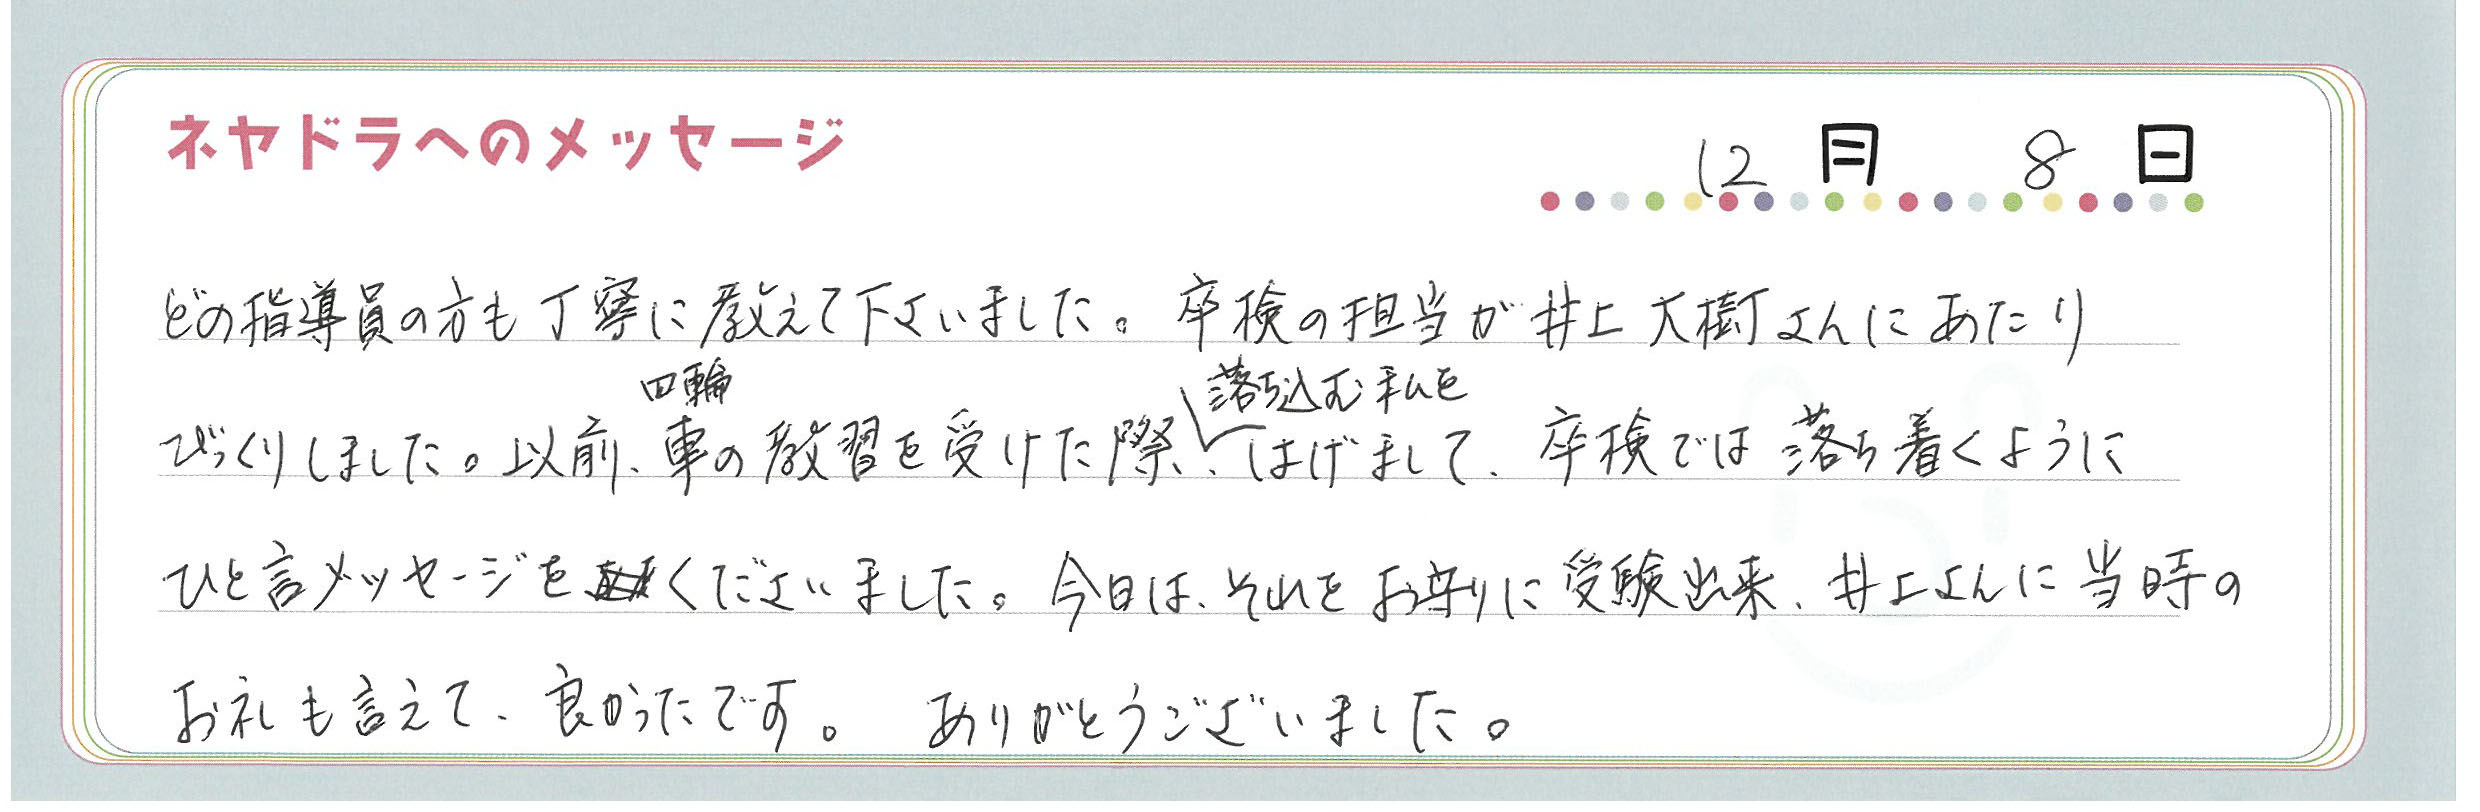 ネヤドラへのメッセージ
12月 8日
どの指導員の方も丁寧に教えて下さいました。卒検の担当が井上大樹さんにあたり
四輪 落ち込む私を
びっくりしました。以前、車の教習を受けた際、はげまして、卒検では落ち着くように
ひと言メッセージをくださいました。今日は、それをお守りに受験出来、井上さんに当時の
お礼も言えて、良かったです。ありがとうございました。